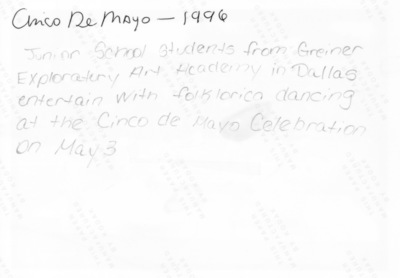 Cinco De Mayo - 1996
Junior School students from Greiner
Exploratory Art Academy in Dallas
entertain with folklorica dancing
at the Cinco de Mayo Celebration
on May 3